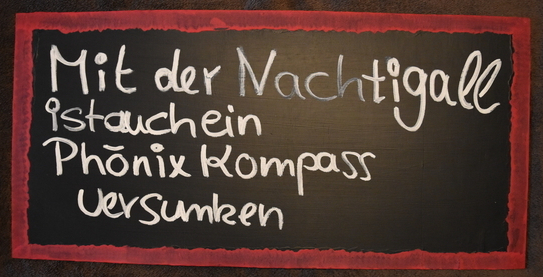 Mit der Nachtigall
ist auch ein
Phōnix Kompass
versunken